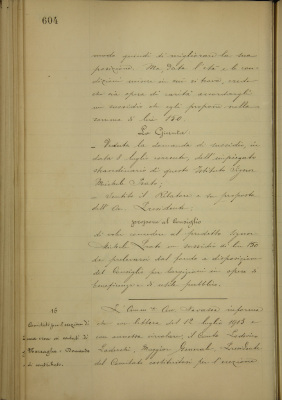 604
modo quindi di migliorare la sua
posizione. Ma, data l'età e le con-
dizioni misere in cui si trova, crede
che sia opera di carità accordargli
un sussidio che egli propone nella
somma di lire 150.
La Giunta
- Veduta la domanda di sussidio, in
data 1 luglio corrente, dell'impiegato
straordinario di questo Istituto Signor
Michele
- Sentito il Relatore e la proposta
dell' On. Presidente,
propone al Consiglio
di voler accordare al predetto Signor
Michele un sussidio di lire 150
da prelevarsi dal fondo a disposizione
del Consiglio per erogazioni in opere di
beneficenza e di utilità pubblica.
15
Comitato per l'erezione di
a
- Domanda
di contributo.
L' Comm. Avv. informa
che con lettera del 1º luglio 1903 e
con annessa circolare, il Conte
Maggior Generale, Presidente
del Comitato costituitosi per l'erezione